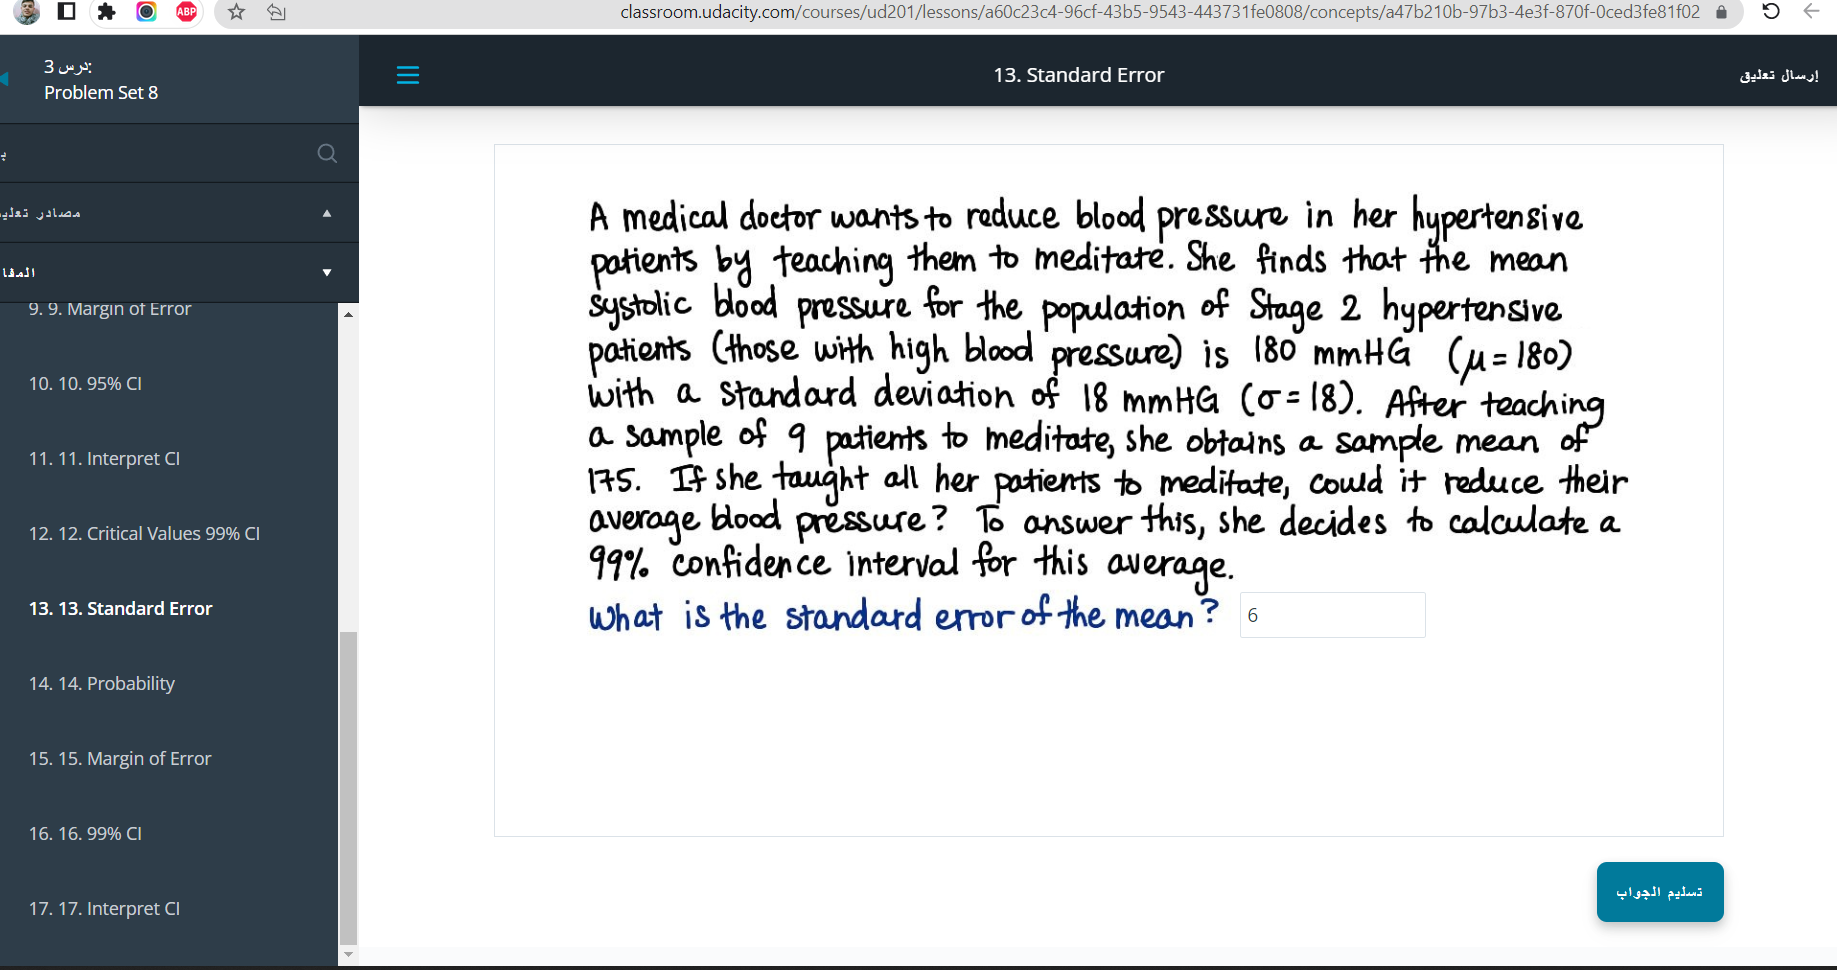 ABP
classroom.udacity.com/courses/ud201/lessons/a60c23c4-96cf-43b5-9543-443731fe0808/concepts/a47b210b-97b3-4e3f-870f-0ced3fe81f02
درس 3:
Problem Set 8
13. Standard Error
إرسال تعليق
مصادر
9. 9. Margin of Error
10. 10. 95% CI
11. 11. Interpret CI
12. 12. Critical Values 99% CI
13. 13. Standard Error
14. 14. Probability
15. 15. Margin of Error
16. 16. 99% CI
17. 17. Interpret CI
A medical doctor wants to reduce blood pressure in her hypertensive
patients by teaching them to meditate. She finds that the mean
systolic blood pressure for the population of Stage 2 hypertensive
patients (those with high blood pressure) is 180 mmHG (μ=180)
with a standard deviation of 18 mmHG (σ=18). After teaching
a sample of 9 patients to meditate, she obtains a sample mean of
175. If she taught all her patients to meditate, could it reduce their
average blood pressure? To answer this, she decides to calculate a
99% confidence interval for this average.
What is the standard error of the mean? 6
تسليم الجواب